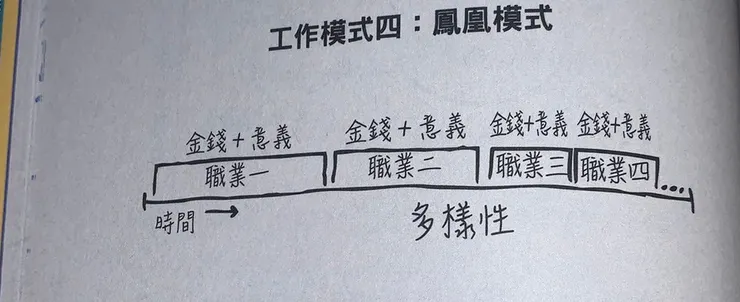 工作模式四：鳳凰模式
金錢+意義 金錢+意義 金錢+意義 金錢+意義
職業一 職業二 職業三 職業四 ....
時間 →
多樣性